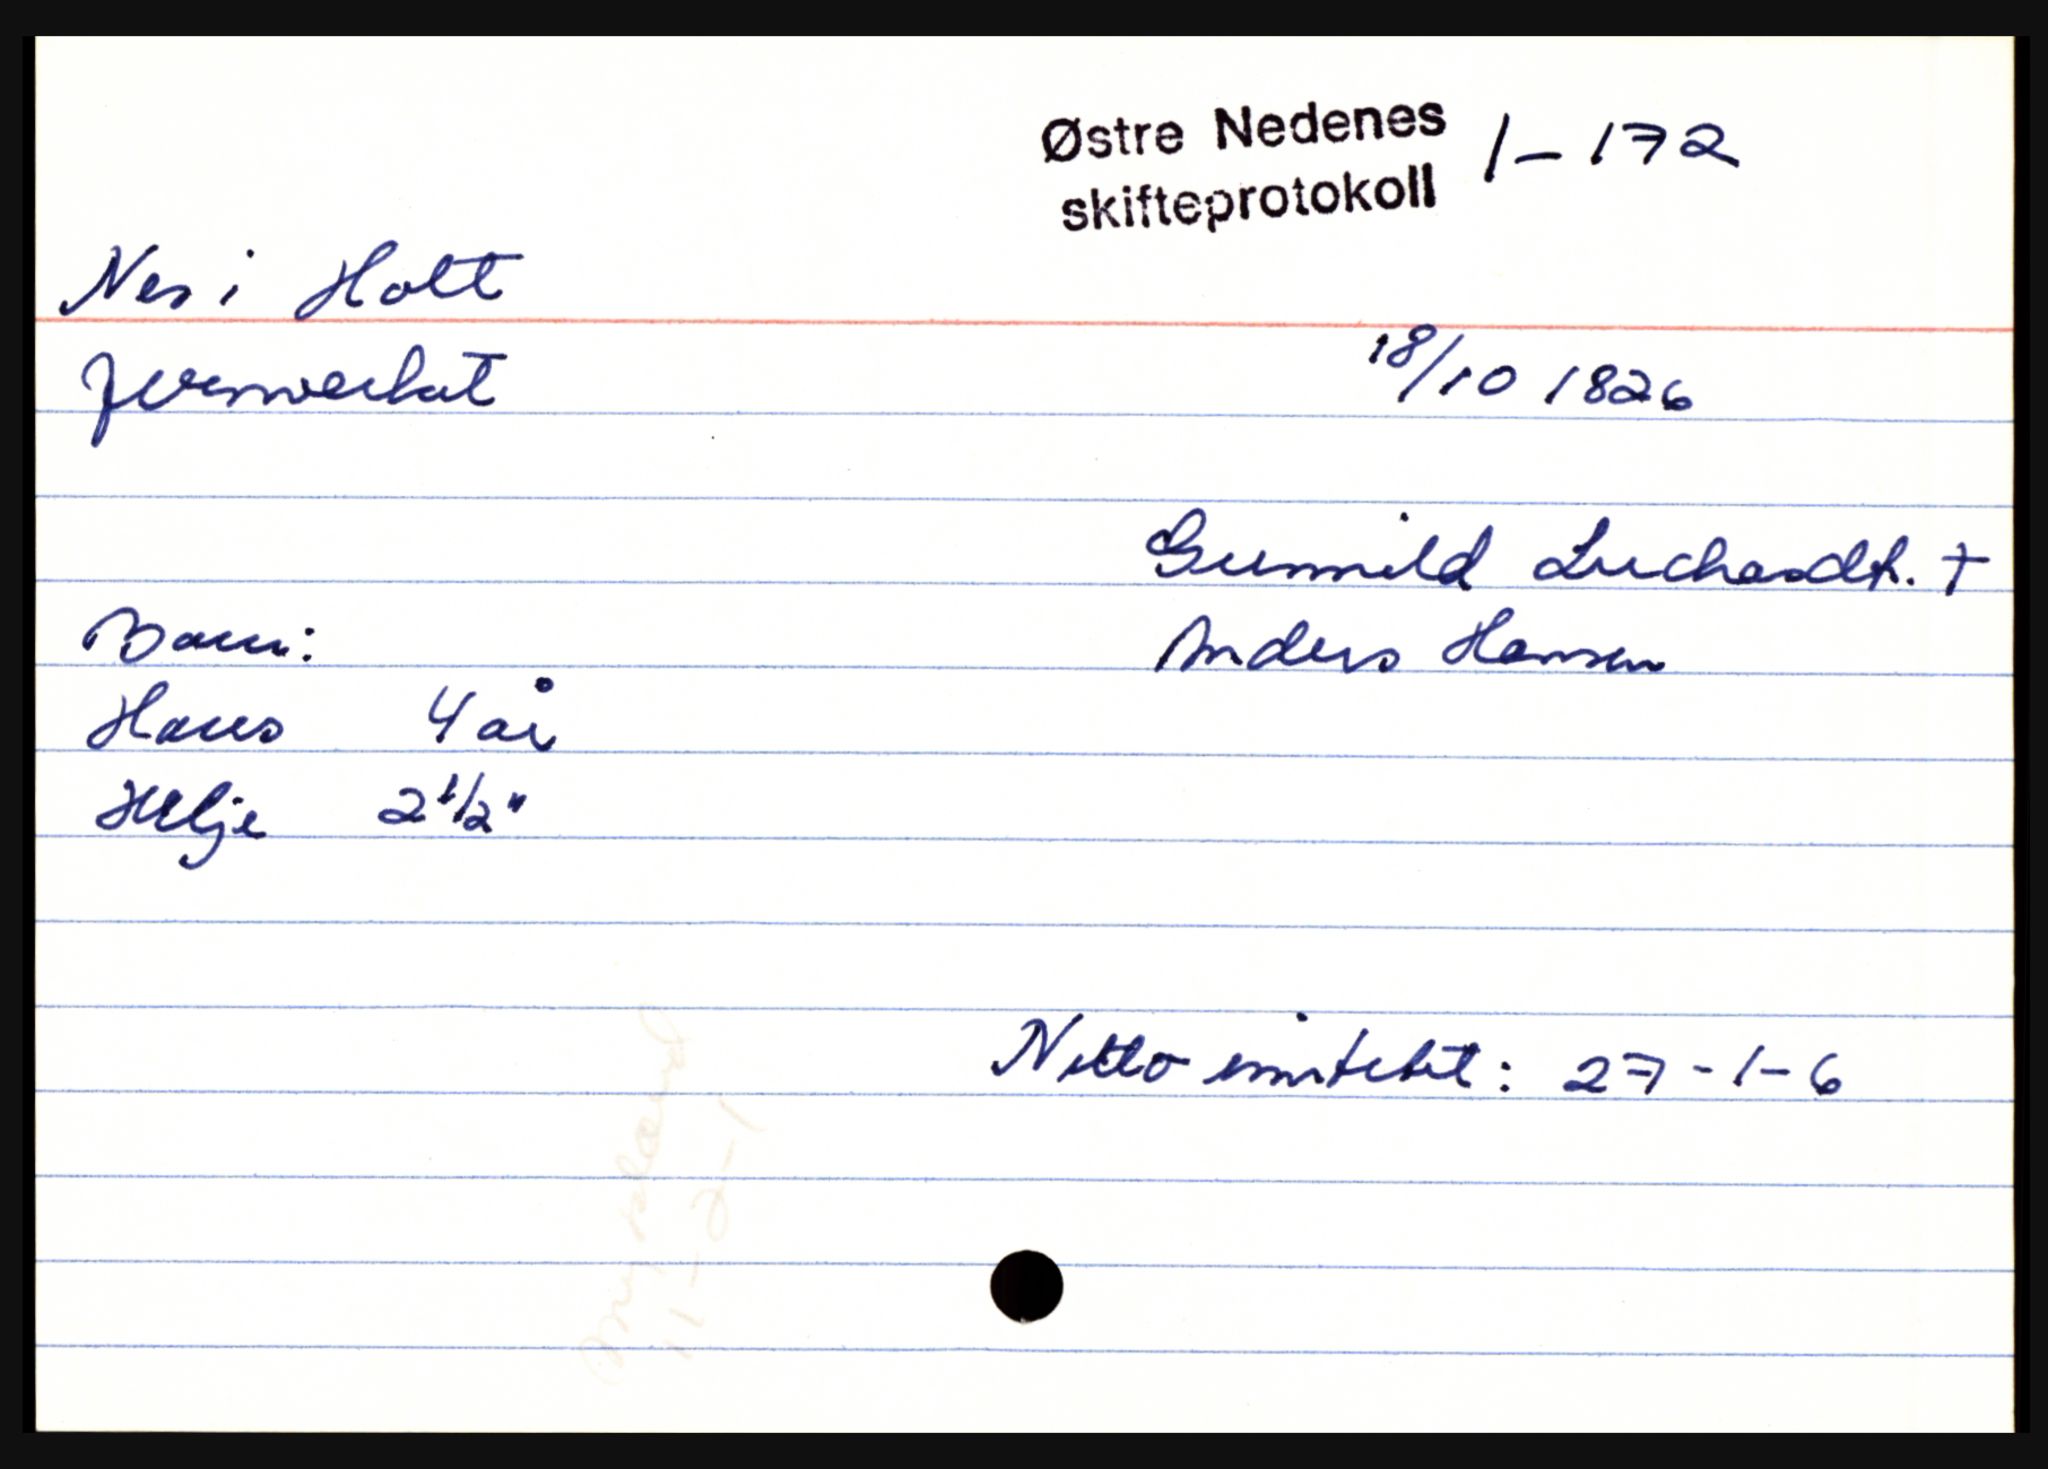 Østre Nedenes 1-172
skifteprotokoll
Nes i Holt
jernverket
18/10 1826
Gunnild Luchardtr. †
Barn:
Anders Hansen
Hans 4 år
Helje 2 1/2 "
Netto innteket: 27-1-6